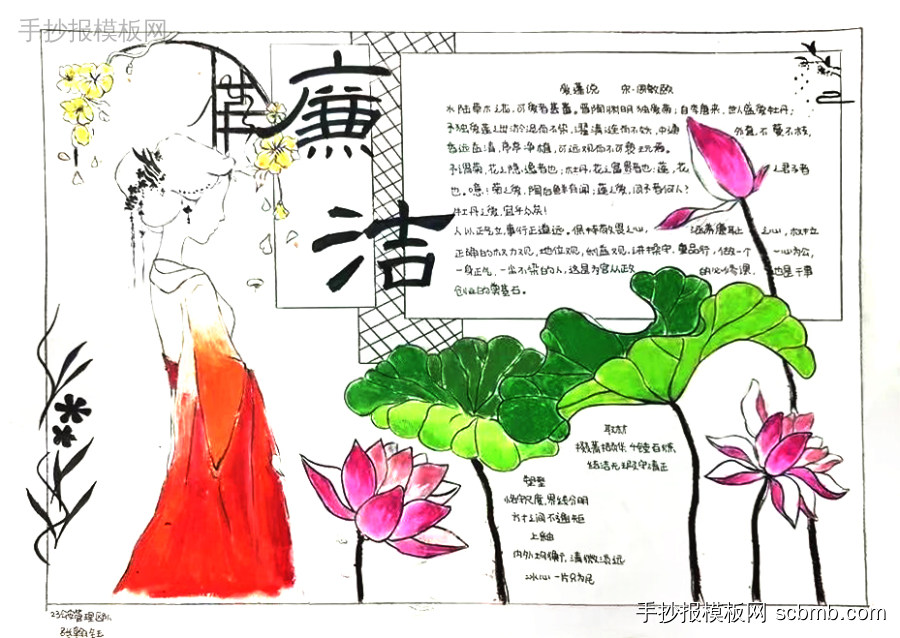 手抄报模板网
廉
洁
爱莲说 宋·周敦颐
水陆草木之花,可爱者甚蕃。晋陶渊明独爱菊;自李唐来,世人盛爱牡丹;
予独爱莲之出淤泥而不染,濯清涟而不妖,中通 外直,不蔓不枝,
香远益清,亭亭净植,可远观而不可亵玩焉。
予谓菊,花之隐逸者也;牡丹,花之富贵者也;莲,花 之君子者
也。噫!菊之爱,陶后鲜有闻;莲之爱,同予者何人?
牡丹之爱,宜乎众矣!
人以正气立,事行正道远。保持敬畏之心, 涵养廉耻 之心,树立
正确的权力观,地位观,利益观,讲操守,重品行,做一个 一心为公,
一身正气,一尘不染的人,这是为官从政 的必修课, 也是干事
创业的奠基石。
取材
千锤百炼
塑型
方寸之间不逾矩
上釉
23级管理
手抄报模板网 scbmb.com